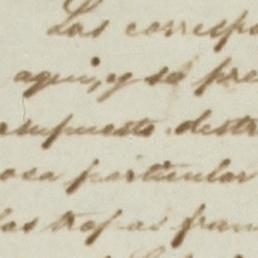 Los correspo
aqui, y se pre
esupuesto destr
osa particular
las tropas fran